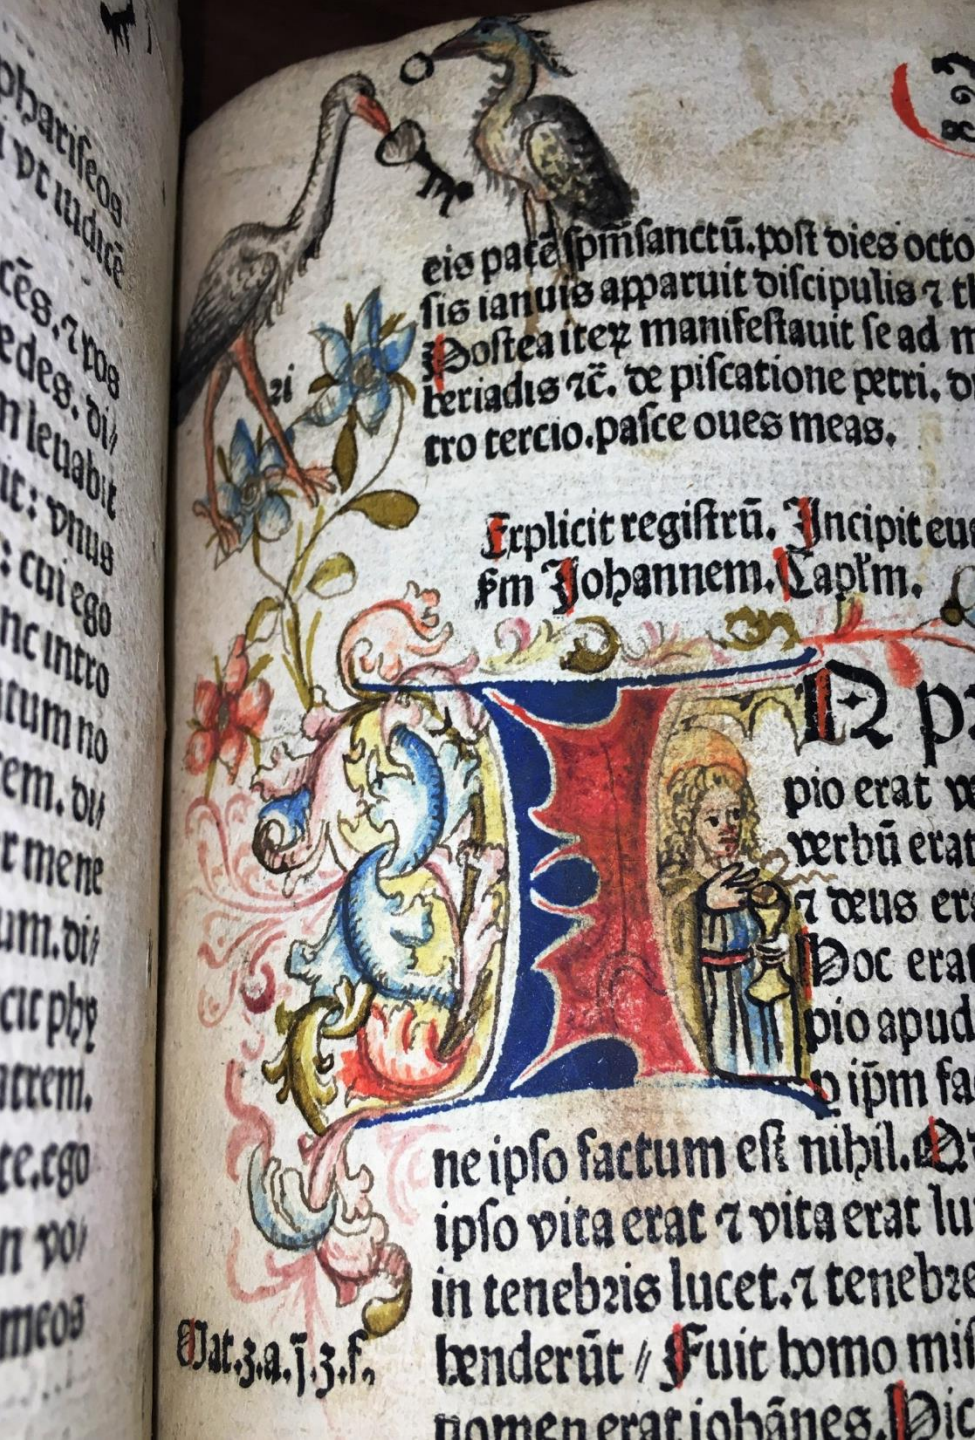 phariseos
vt iudicē
cēs. ⁊ vos
edes. di⸗
leuabit
it: vnus
: cui ego
nc intro
tum no
em. di⸗
r me ne
um. di⸗
cit phꝫ
atrem.
te. ego
n vo⸗
meos
897
eis pacē spm̄sanctū. post dies octo
sis ianuis apparuit discipulis ⁊
Postea iteꝝ manifestauit se ad
beriadis ⁊c̄. de piscatione petri.
tro tercio. pasce oues meas.
Explicit registrū. Incipit
ẜm Johannem. Capłm.
IN
pio erat
verbū erat
⁊ deus
Hoc erat
pio apud
ip̄m
ne ipso factum est nihil.
ipso vita erat ⁊ vita erat
in tenebris lucet. ⁊
henderūt // Fuit homo
nomen erat iohānes. Hic
Mat.